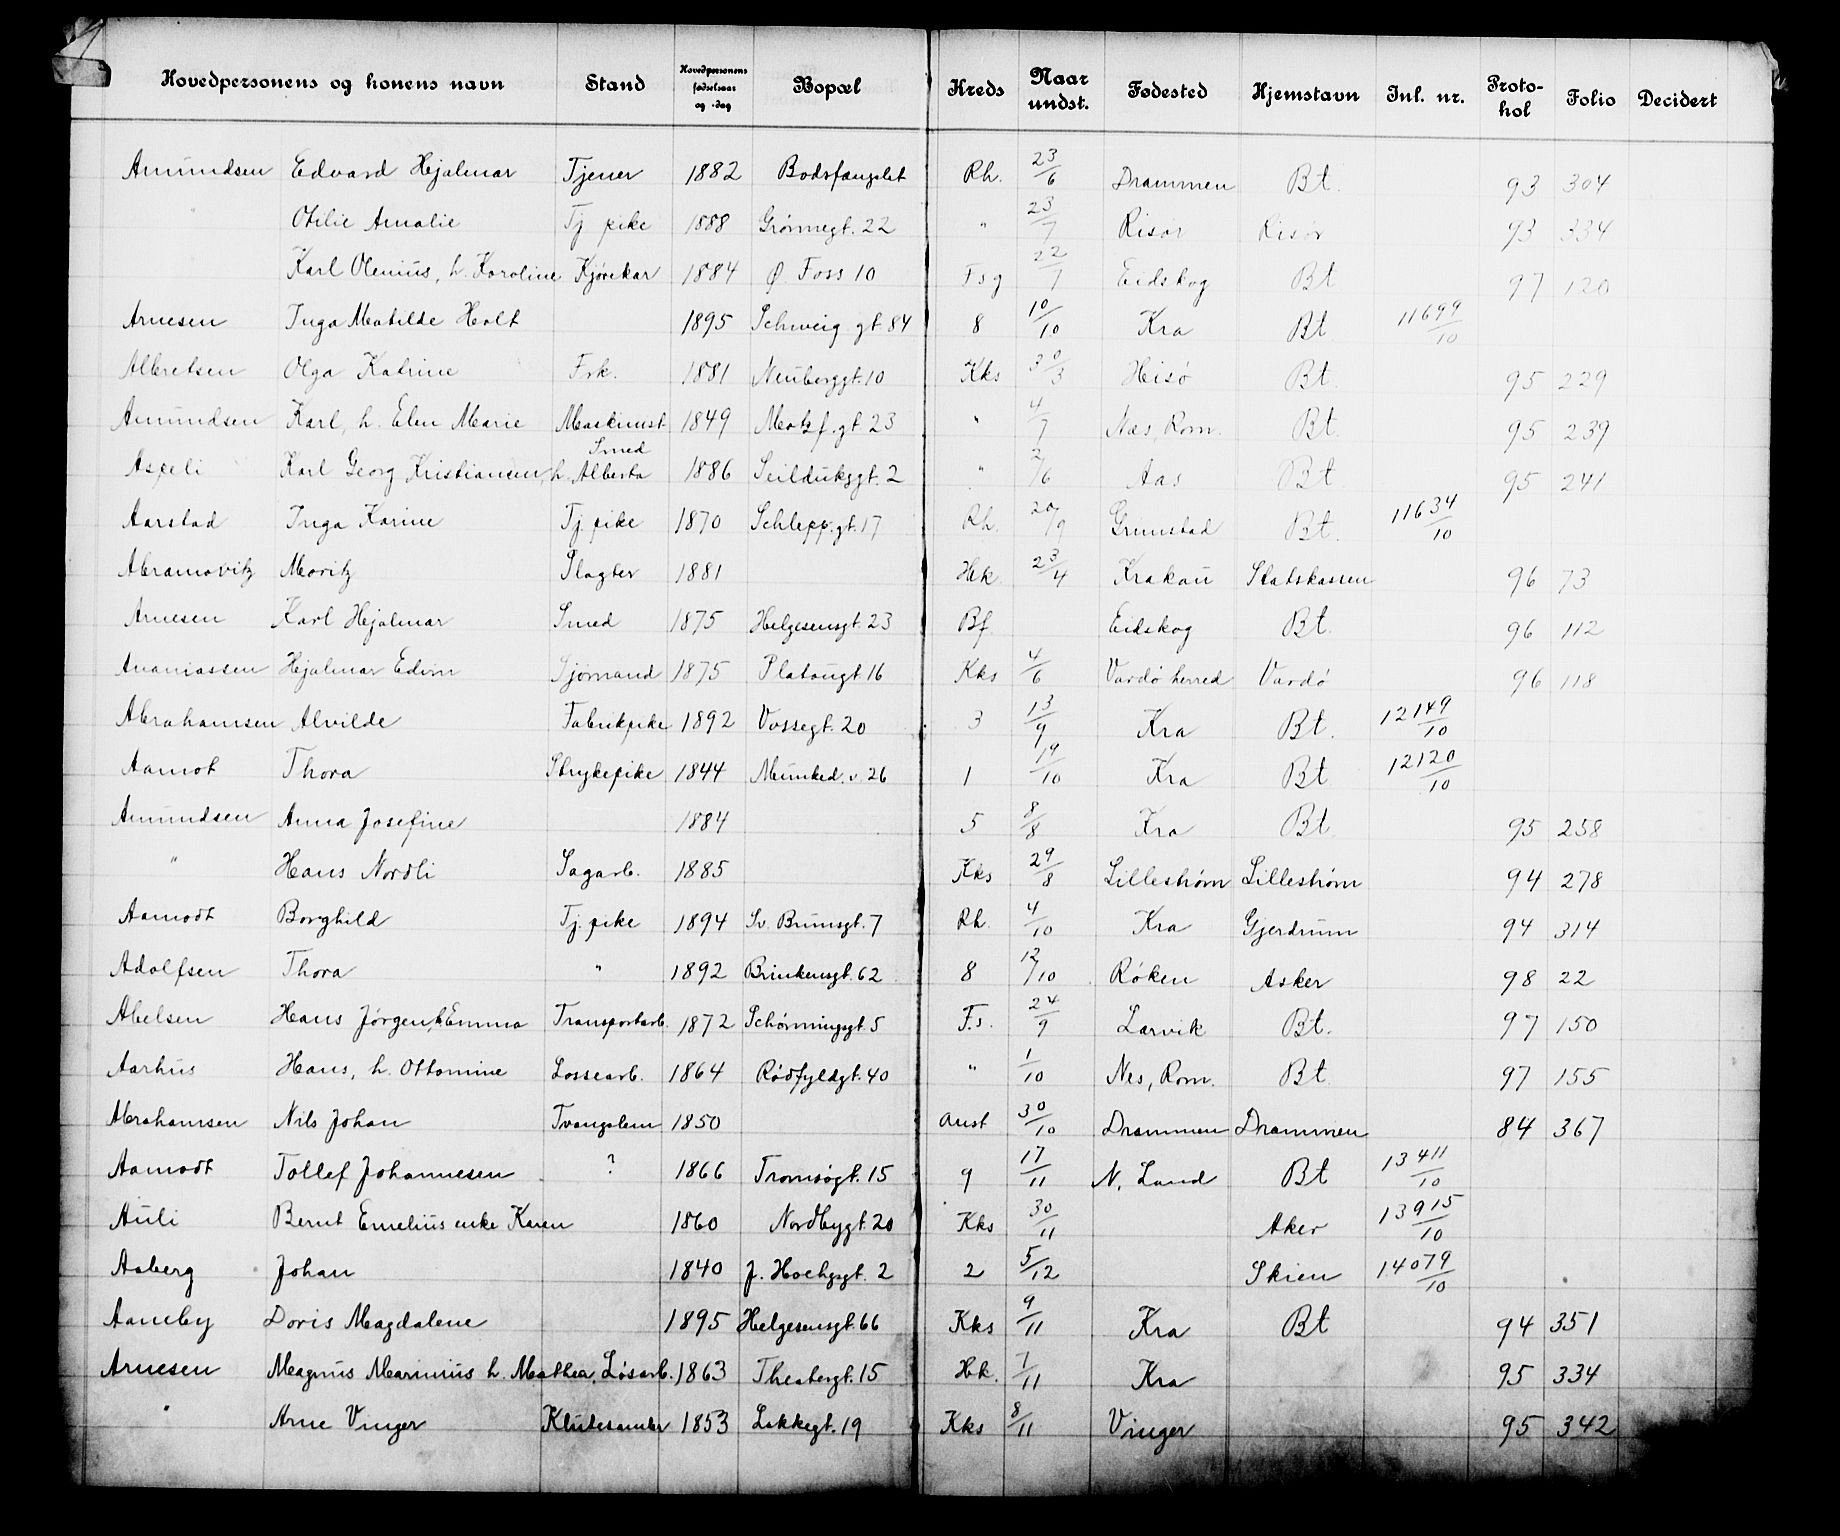 Hovedpersonens og konens navn Stand Hovedpersonens fødselsaar og -dag Bopæl Kreds Naar undst. Fødested Hjemstavn Inl. nr. Proto-kol Folio Decidert
Amundsen Edvard Hjalmar Tjener 1882 Bodsfængslet Rh. 23/6 Drammen Bt. 93 304
" Otilie Amalie Tj pike 1888 Grønnegt. 22 " 23/7 Risør Risør 93 334
Karl Olenius, h. Karoline Kjørekar 1884 Ø. Foss 10 Fsg 22/7 Eidskog Bt 97 120
Arnesen Inga Matilde Holt 1895 Schweig gt 84 8 10/10 Kra Bt 11699/10
Albretsen Olga Katrine Frk. 1881 Neuberggt. 10 Kks 30/3 Heisø Bt. 95 229
Amundsen Karl, h. Elen Marie Maskinist 1849 Motzf. gt 23 " 4/7 Næs, Rom. Bt. 95 239
Aspeli Karl Georg Kristiansen, h. Alberta Smed 1886 Seilduksgt. 2 " 2/6 Aas Bt. 95 241
Aarstad Inga Karine Tj. pike 1870 Schlepp. gt. 17 Rh. 20/9 Grimstad Bt. 11634/10
Abramovitz Moritz Slagter 1881 Hk. 23/4 Krakau Statskassen 96 73
Arnesen Karl Hjalmar Smed 1875 Helgesensgt. 23 Bf. Eidskog Bt. 96 112
Ananiassen Hjalmar Edvin Sjømand 1875 Platougt 16 Kks 4/6 Vardø herred Vardø 96 118
Abrahamsen Alvilde Fabrikpike 1892 Vossegt. 20 3 13/9 Kra Bt. 12149/10
Aamot Thora Strykepike 1844 Munked. v. 26 1 19/10 Kra Bt 12120/10
Amundsen Anna Josefine 1884 5 8/8 Kra Bt. 95 258
" Hans Nordli Sagarb. 1885 Kks 29/8 Lillestrøm Lillestrøm 94 278
Aamodt Borghild Tj. pike 1894 Sv. Brunsgt. 7 Rh. 4/10 Kra Gjerdrum 94 314
Adolfsen Thora " 1892 Brinkensgt. 62 8 12/10 Røken Asker 98 22
Abelsen Hans Jørgen, h. Emma Transportarb. 1872 Schønningsgt. 5 F.s. 24/9 Larvik Bt. 97 150
Aarhus Hans, h. Ottomine Lossearb. 1864 Rødfyldgt. 40 " 1/10 Nes, Rom. Bt. 97 155
Abrahamsen Nils Johan Tvangslem 1850 Anst 30/10 Drammen Drammen 84 367
Aamodt Tollef Johannesen ? 1866 Tromsøgt. 15 9 17/11 N. Land Bt 13411/10
Auli Bernt Emelius enke Karen 1860 Nordbygt. 20 Kks 30/11 Aker 13915/10
Aaberg Johan 1840 J. Hoelsgt. 2 2 5/12 Skien 14079/10
Aameby Doris Magdalene 1895 Helgesensgt. 66 Kks 9/11 Kra Bt 94 351
Arnesen Magnus Marinius h. Mathea, Løsarb. 1863 Theatergt. 15 Hk. 7/11 Kra 95 334
" Arne Vinger Klutesamler 1853 Lakkegt. 19 Kks 8/11 Vinger 95 342